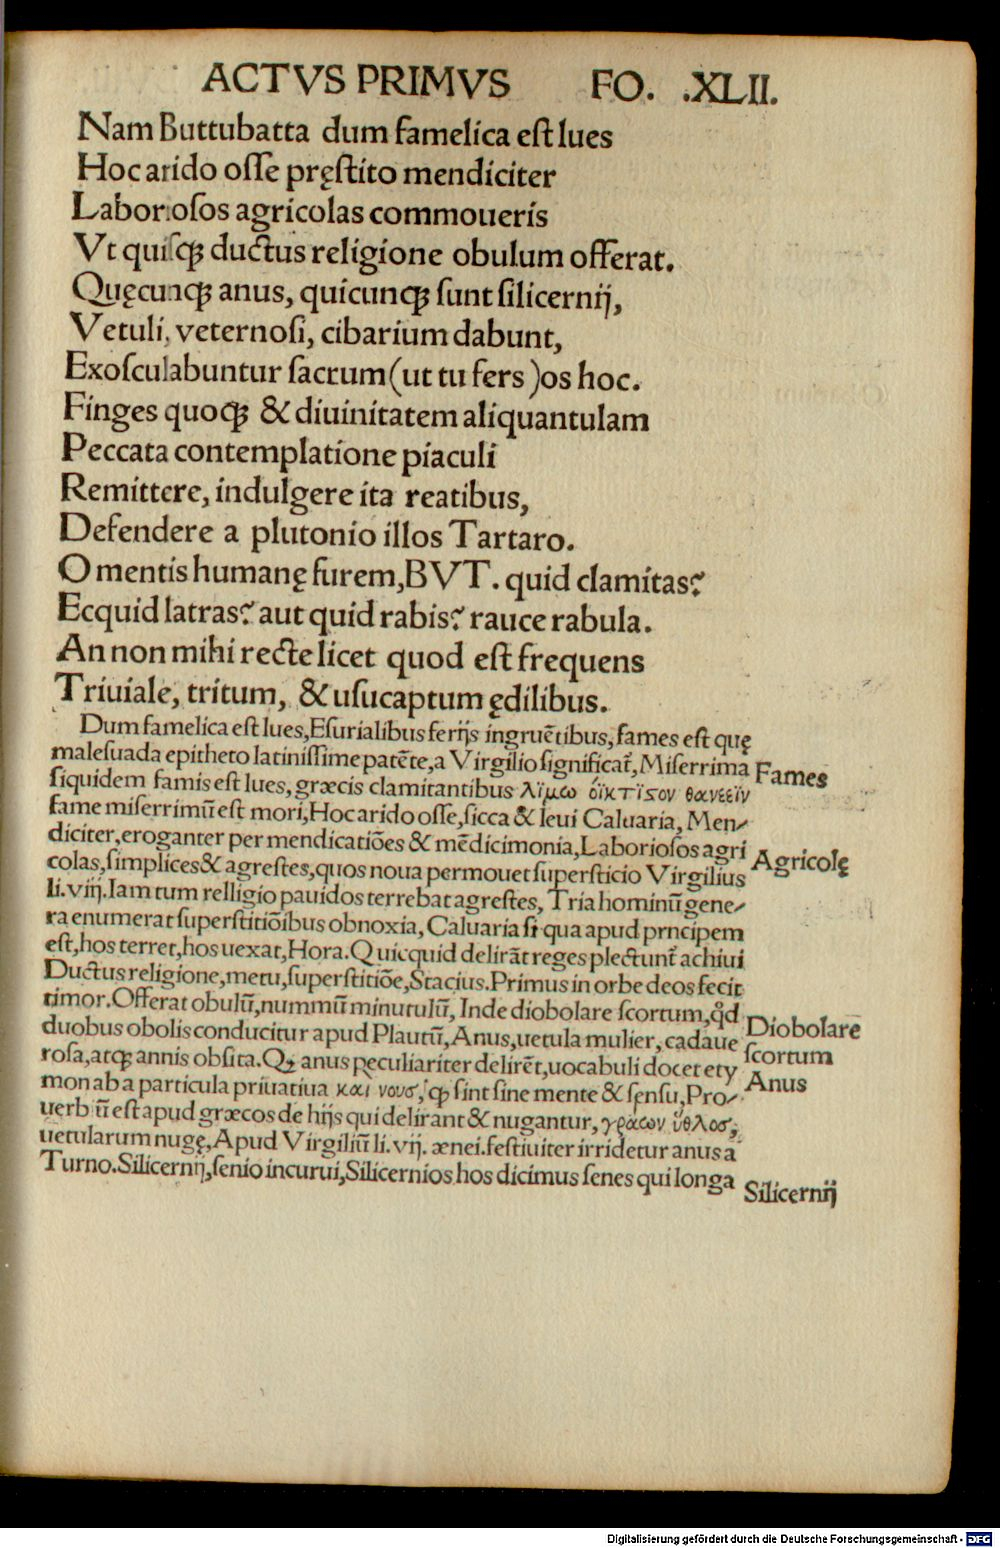 ACTVS PRIMVS FO. .XLII.
Nam Buttubatta dum famelica eſt lues
Hoc arido oſſe pręſtito mendiciter
Laborioſos agricolas commoueris
Vt quiſqꝫ ductus religione obulum offerat.
Quęcunqꝫ anus, quicunqꝫ ſunt ſilicernij,
Vetuli, veternoſi, cibarium dabunt,
Exoſculabuntur ſacrum (ut tu fers )os hoc.
Finges quoqꝫ & diuinitatem aliquantulam
Peccata contemplatione piaculi
Remittere, indulgere ita reatibus,
Defendere a plutonio illos Tartaro.
O mentis humanę furem, BVT. quid clamitas?
Ecquid latras? aut quid rabis? rauce rabula.
An non mihi recte licet quod eſt frequens
Triuiale, tritum, & uſucaptum ędilibus.
Dum famelica eſt lues, Eſurialibus ferijs ingruētibus, fames eſt quę
maleſuada epitheto latiniſſime patēte, a Virgilio ſignificat̃, Miſerrima
Fames
ſiquidem famis eſt lues, græcis clamitantibus λϊμω όϊκτϊϛον θανεεϊν
fame miſerrimū eſt mori, Hoc arido oſſe, ſicca & leui Caluaria, Men⸗
diciter, eroganter per mendicatiōes & mēdicimonia, Laborioſos agri
Agricolę
colas, ſimplices & agreſtes, quos noua permouet ſuperſticio Virgilius
li. viij. Iam tum relligio pauidos terrebat agreſtes, Tria hominū gene⸗
ra enumerat ſuperſtitiōibus obnoxia, Caluaria ſi qua apud principem
eſt, hos terret, hos uexat, Hora. Quicquid delirāt reges plectunt̃ achiui
Ductus religione, metu, ſuperſtitiōe, Stacius. Primus in orbe deos fecit
timor. Offerat obulū, nummū minutulū, Inde diobolare ſcortum, qd̊
Diobolare
duobus obolis conducitur apud Plautū, Anus, uetula mulier, cadaue
ſcortum
roſa, atqꝫ annis obſita. Qꝫ anus pęculiariter delirēt, uocabuli docet ety
Anus
mon ab a particula priuatiua και νουσ, qꝫ ſint ſine mente & ſenſu, Pro⸗
uerb ū eſt apud græcos de hijs qui delirant & nugantur, γραων ὕθλοσ,
uetularum nugę, Apud Virgiliū li. vij. ænei. feſtiuiter irridetur anus a
Turno. Silicernij, ſenio incurui, Silicernios hos dicimus ſenes qui longa
Silicernij
Digitalisierung gefördert durch die Deutsche Forschungsgemeinschaft - DFG